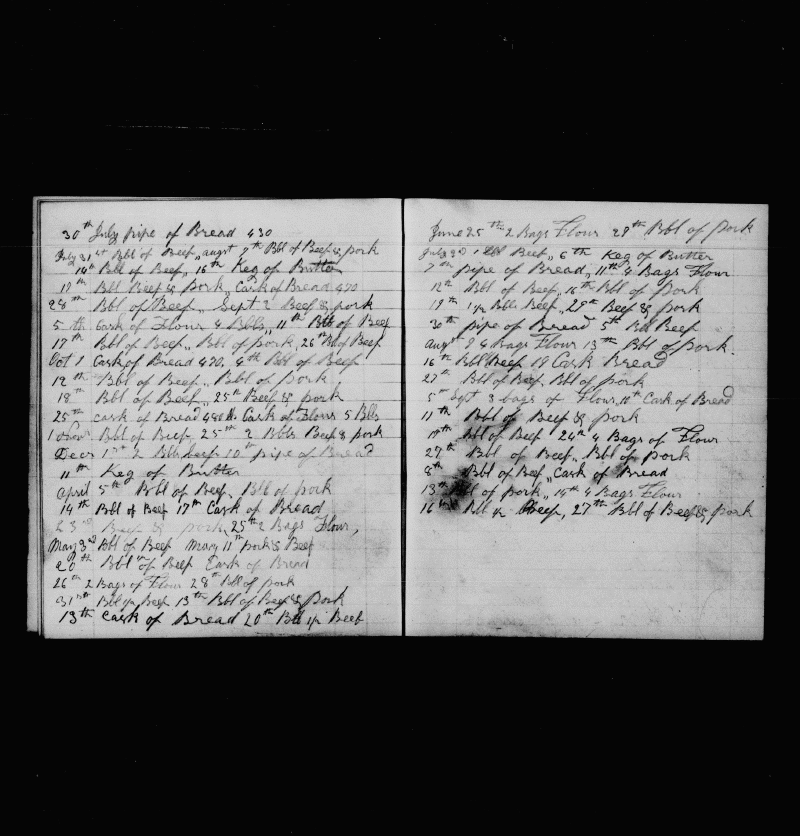 30th July pipe of Bread 430
July 31st Bbl of Beef,, augst 7th Bbl of Beef & pork
14th Bbl of Beef,, 16th Keg of Butter
19th Bbl Beef & Pork, Cask of Bread 470
28th Bbl of Beef,, Sept 2 Beef & pork
5th Cask of Flour 4 Bbls,, 11th Bbl of Beef
17th Bbl of Beef,, Bbl of pork, 26th Bl of Beef
Oct 1 Cask of Bread 470, 4th Bbl of Beef
12th Bbl of Beef,, Bbl of pork
18th Bbl of Beef,, 25th Beef & pork
25th cask of Bread 448 lb. Cask of Flour 5 Bbls
1 Novr Bbl of Beef 25th 2 Bbls Beef & pork
Decr 1st 2 Bbls beef 10th pipe of Bread
11th Keg of Butter
april 5th Bbl of Beef, Bbl of pork
14th Bbl of Beef 17th Cask of Bread
23rd Beef & pork 25th 2 Bags Flour,
May 3rd Bbl of Beef May 11th pork & Beef
20th Bbl of Beef Cask of Bread
26th 2 Bags of Flour 28th Bbl of pork
31st Bbl of Beef 13th Bbl of Beef & Pork
13th Cask of Bread 20th Bbl Beef
June 25th 2 Bags Flour 29th Bbl of pork
July 3d 1 Bbl Beef,, 6th Keg of Butter
7th pipe of Bread, 11th 4 Bags Flour
12th Bbl of Beef, 16th Bbl of pork
19th Bbls Beef,, 29th Beef & pork
30th pipe of Bread 5th Bbl Beef
augst 9 4 Bags Flour 13th Bbl of pork.
16th Bbl Beef 19 Cask Bread
27th Bbl of Beef, Bbl of pork
5th Sept 3 bags of Flour, 11th Cask of Bread
11th Bbl of Beef & pork
17th Bbl of Beef 24th 4 Bags of Flour
27th Bbl of Beef,, Bbl of pork
8th Bbl of Beef,, Cask of Bread
13th Bbl of pork,, 15th 4 Bags Flour
16th Bbl Beef, 27th Bbl of Beef & pork